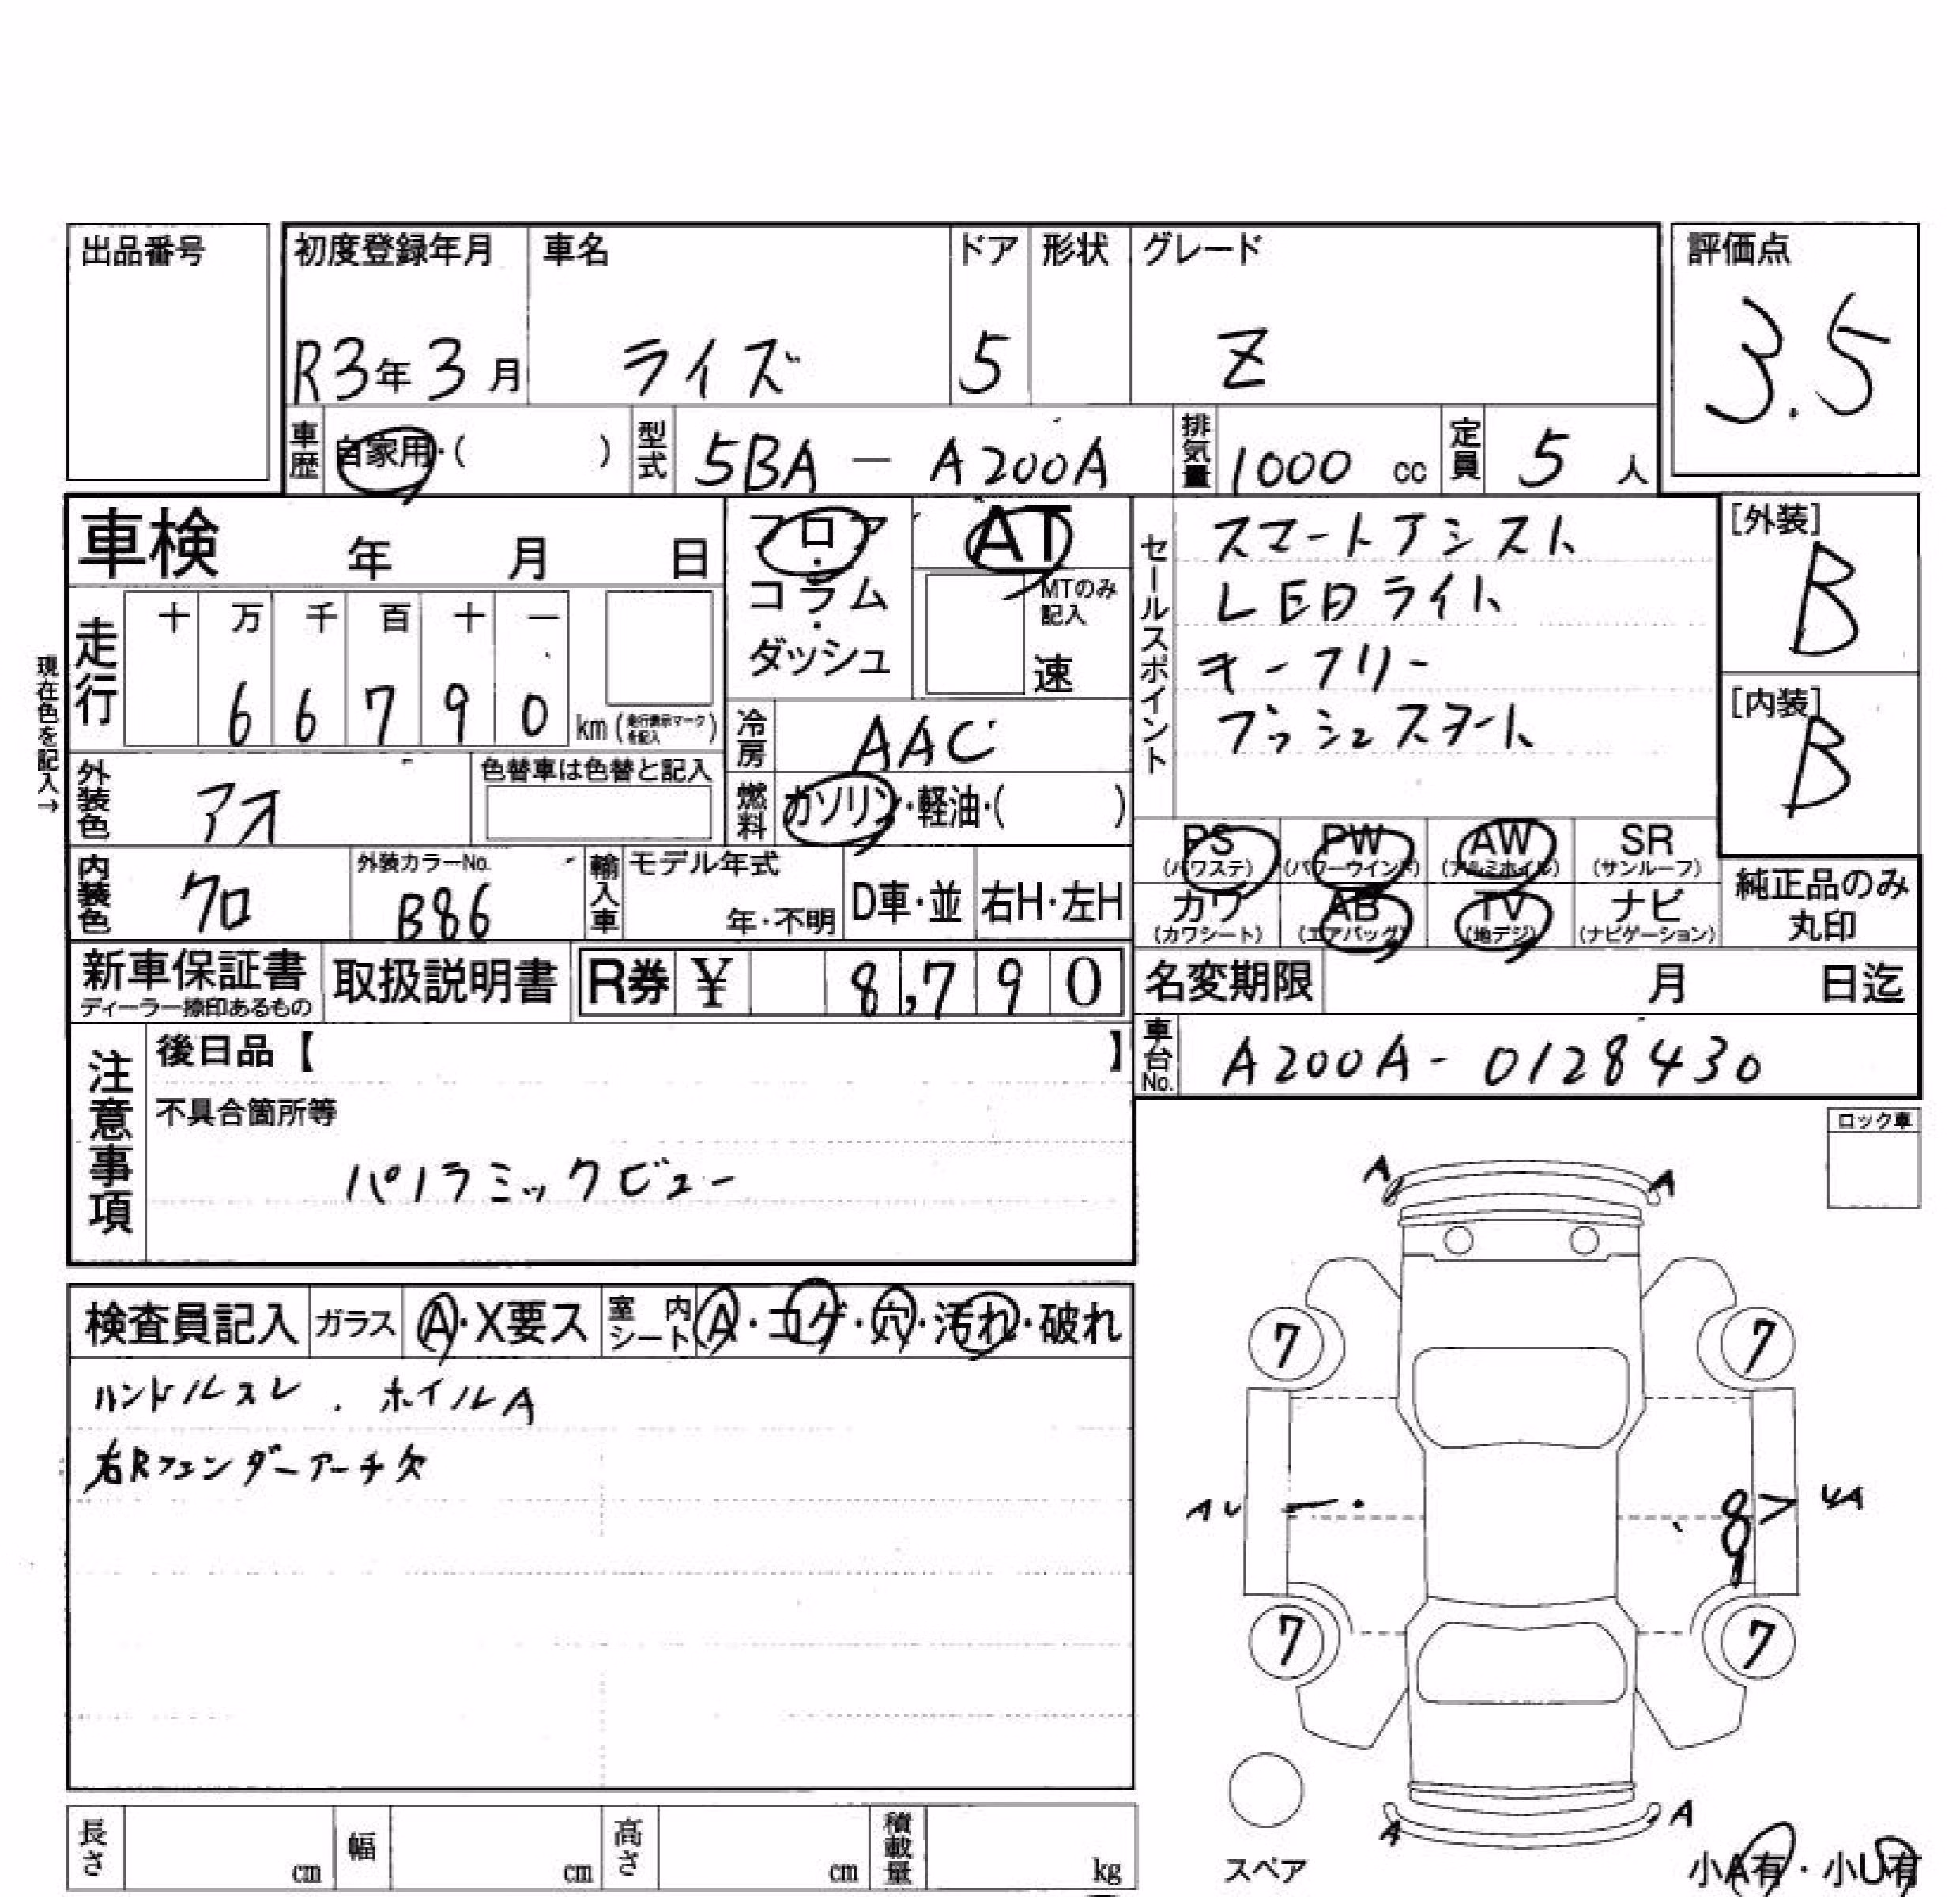 出品番号
初度登録年月 車名 ドア 形状 グレード 評価点
R3年3月 ライズ 5 Z 3.5
車歴 自家用・( ) 型式 5BA－A200A 排気量 1000 cc 定員 5 人
車検 年 月 日
フロア・コラム・ダッシュ
AT
MTのみ記入
速
セールスポイント
スマートアシスト
LEDライト
キーフリー
プッシュスタート
[外装]
B
[内装]
B
現在色を記入→
走行 十 万 千 百 十 一
6 6 7 9 0 km (走行表示マークを記入)
冷房 AAC
外装色 アオ 色替車は色替と記入
燃料 ガソリン・軽油・( )
PS (パワステ) PW (パワーウインド) AW (アルミホイル) SR (サンルーフ)
カワ (カワシート) AB (エアバッグ) TV (地デジ) ナビ (ナビゲーション)
純正品のみ丸印
内装色 クロ 外装カラーNo. B86 輸入車 モデル年式 年・不明 D車・並 右H・左H
新車保証書 ディーラー捺印あるもの 取扱説明書 R券 ¥ 8,790
名変期限 月 日迄
車台No. A200A-0128430
注意事項
後日品【 】
不具合箇所等
パノラミックビュー
ロック車
検査員記入 ガラス A・X要ス 室内シート A・コゲ・穴・汚れ・破れ
ハンドルスレ . ホイルA
右Rフェンダーアーチ欠
A A
7 7
AU UA
7 7
A A
スペア
小A有・小U有
長さ cm 幅 cm 高さ cm 積載量 kg